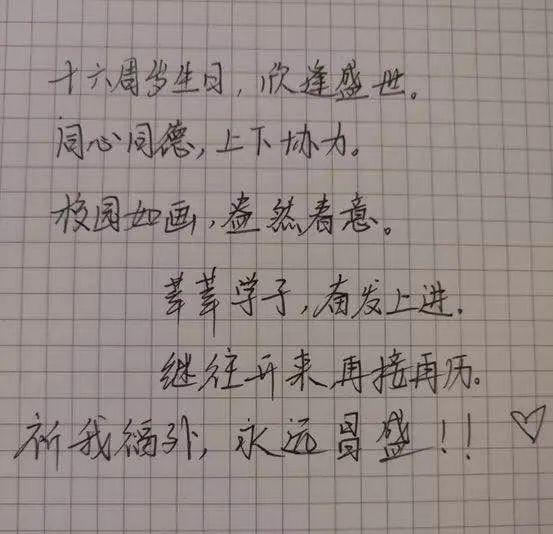 十六周岁生日，欣逢盛世。
同心同德，上下协力。
校园如画，盎然春意。
莘莘学子，奋发上进.
继往开来,再接再历。
祈我福外，永远昌盛！！♡